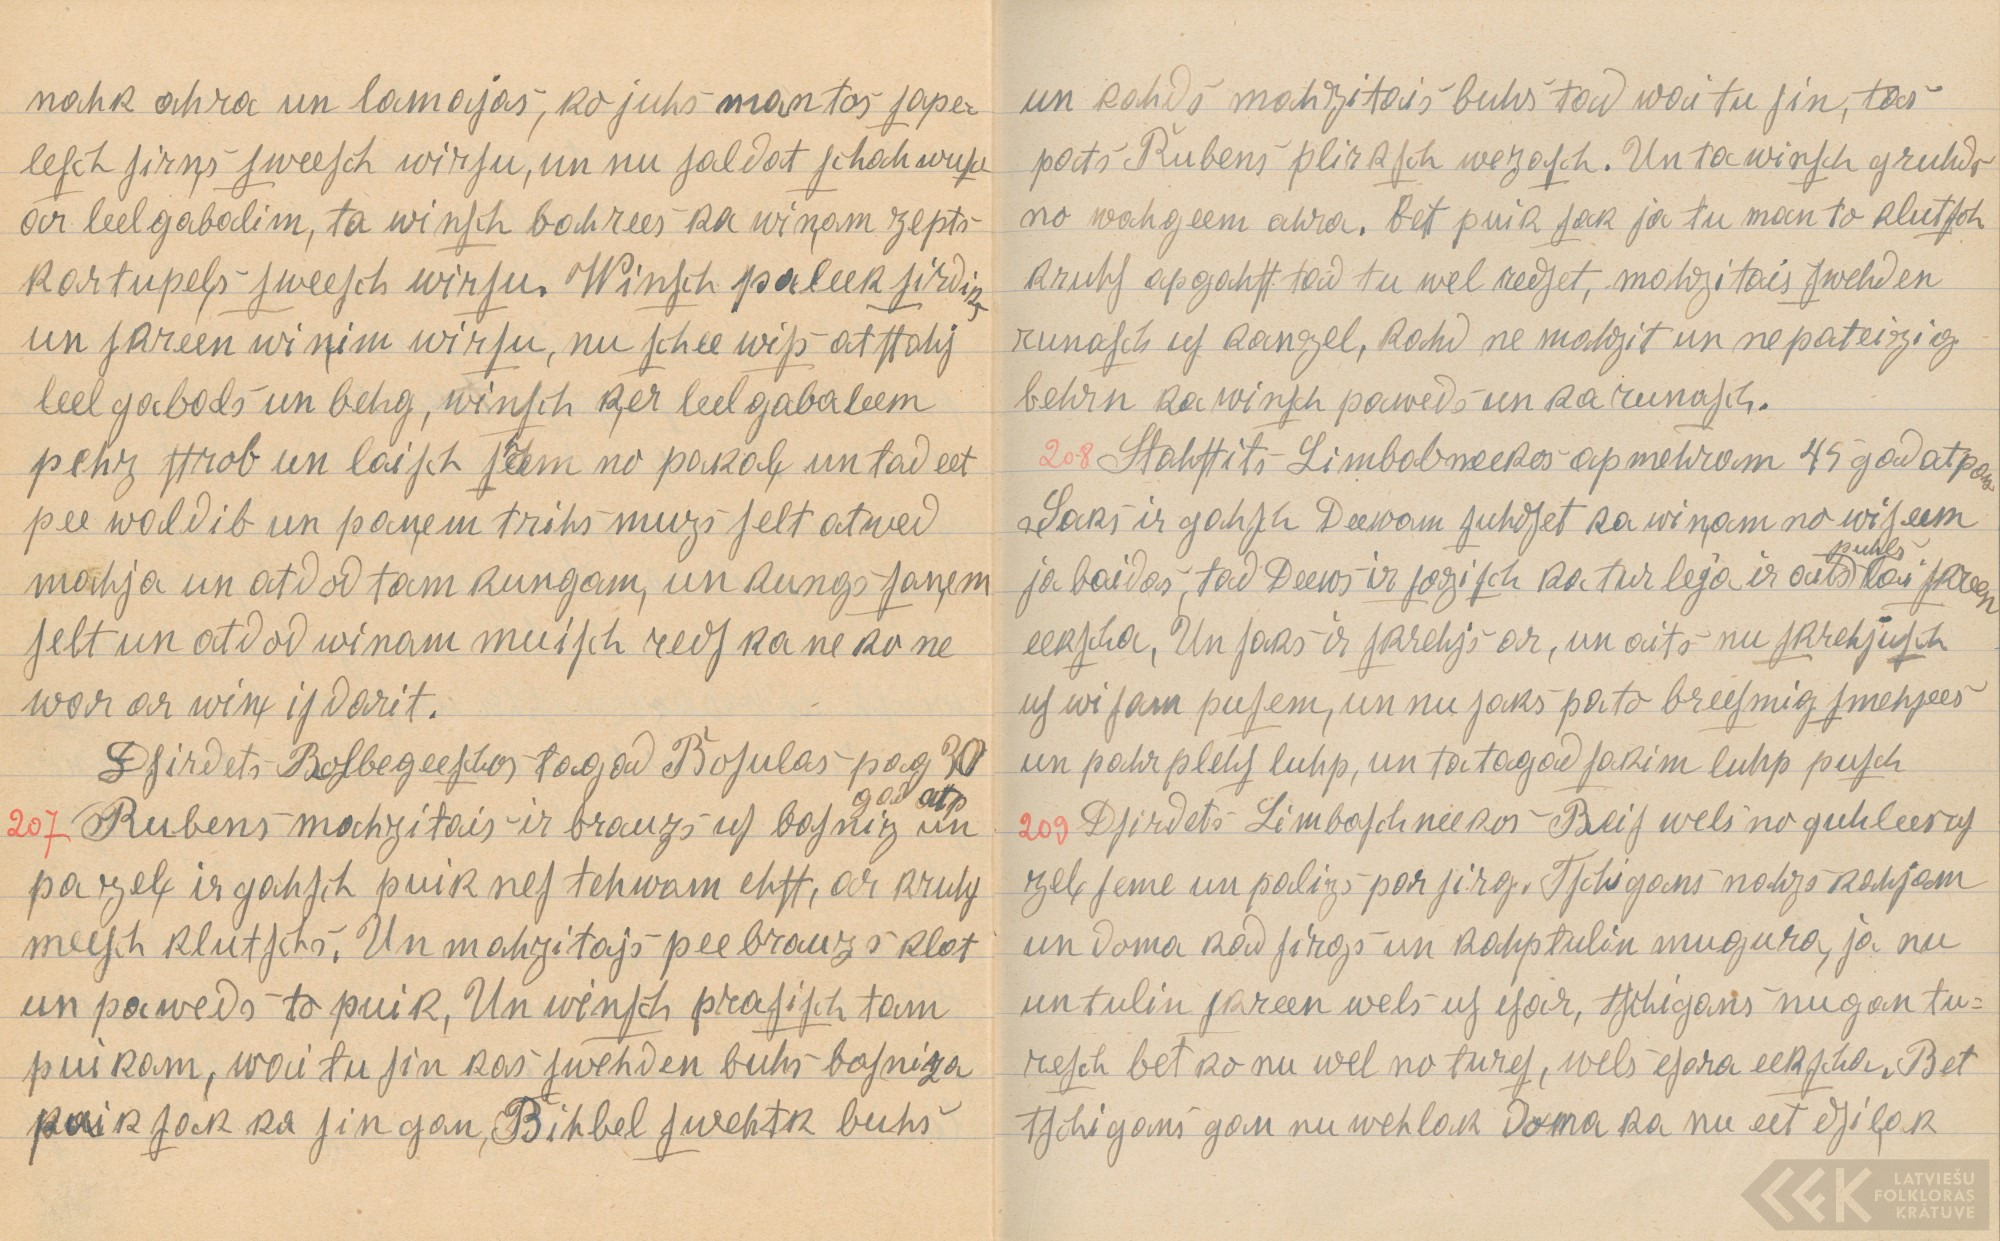 nahk ahra un lamajas, ko juhs mantos saper
lesch sirns sweesch wirsu, un nu saldot schah wuse
ar leelgabalim, ta winsch bahrees ka winam zepts
kartupels sweesch wirsu. Winsch paleek sirdiks
un skreen winim wirsu, nu schee wiss atstahj
leel gabals un behg, winsch ker leelgabaleem
pehz strob un laisch seem no pakal un tad eet
pee waldib un panem trihs muzs selt atwed
mahja un atdod tam kungam, un kungs sanem
selt un atdod winam muisch reds ka ne ko ne
war ar win isdarit.
Dsirdets Bosbegeeschos tagad Bosulas pag 30
gad atp
207 Rubens mahzitais ir brauzs us basniz un
pa zel ir gahsch puik nes tehwam ehst, ar kruhs
meesch klutschs. Un mahzitajs pee brauzs klat
un paweds to puik, Un winsch prasisch tam
puikam, wai tu sin kas swehden buhs basniza
puik sak ka sin gan, Bihbel swehtk buhs
un kahds mahzitais buhs tad wai tu sin, tas
pats Rubens plirksch wezasch. Un ta winsch gruhds
no wahgeem ahra. Bet puik sak ja tu man to klutsch
kruhs apgahst tad tu wel redset, mahzitais swehden
runasch us kanzel, kahd ne mahzit un nepateizig
behrn ka winsch paweds un ka runasch.
208 Stahstits Limbabneekos apmehram 45 gad atpaz
Saks ir gahsch Deewam suhdset ka winam no wiseem
puhls
ja baidas, tad Deews ir sazisch ka tur leja ir aitd lai skreen
eekscha, Un saks ir skrehjs ar, un aits nu skrehjusch
us wisam pusem, un nu saks pa to breesmig smehjees
un pahrplehs luhp, un ta tagad sakim luhp pusch
209 Dsirdets Limbaschneekos Beis wels no guhleeras
zel seme un palizs par sirg. Tschigans nahzs kahjam
un doma kad sirgs un kahptulin mugura, ja nu
un tulin skreen wels us esar, tschigans nu gan tu=
resch bet ko nu wel no tures, wels esara eekscha. Bet
tschigans gan nu wehlak doma ka nu eet dsilak
LATVIEŠU
FOLKLORAS
KRĀTUVE